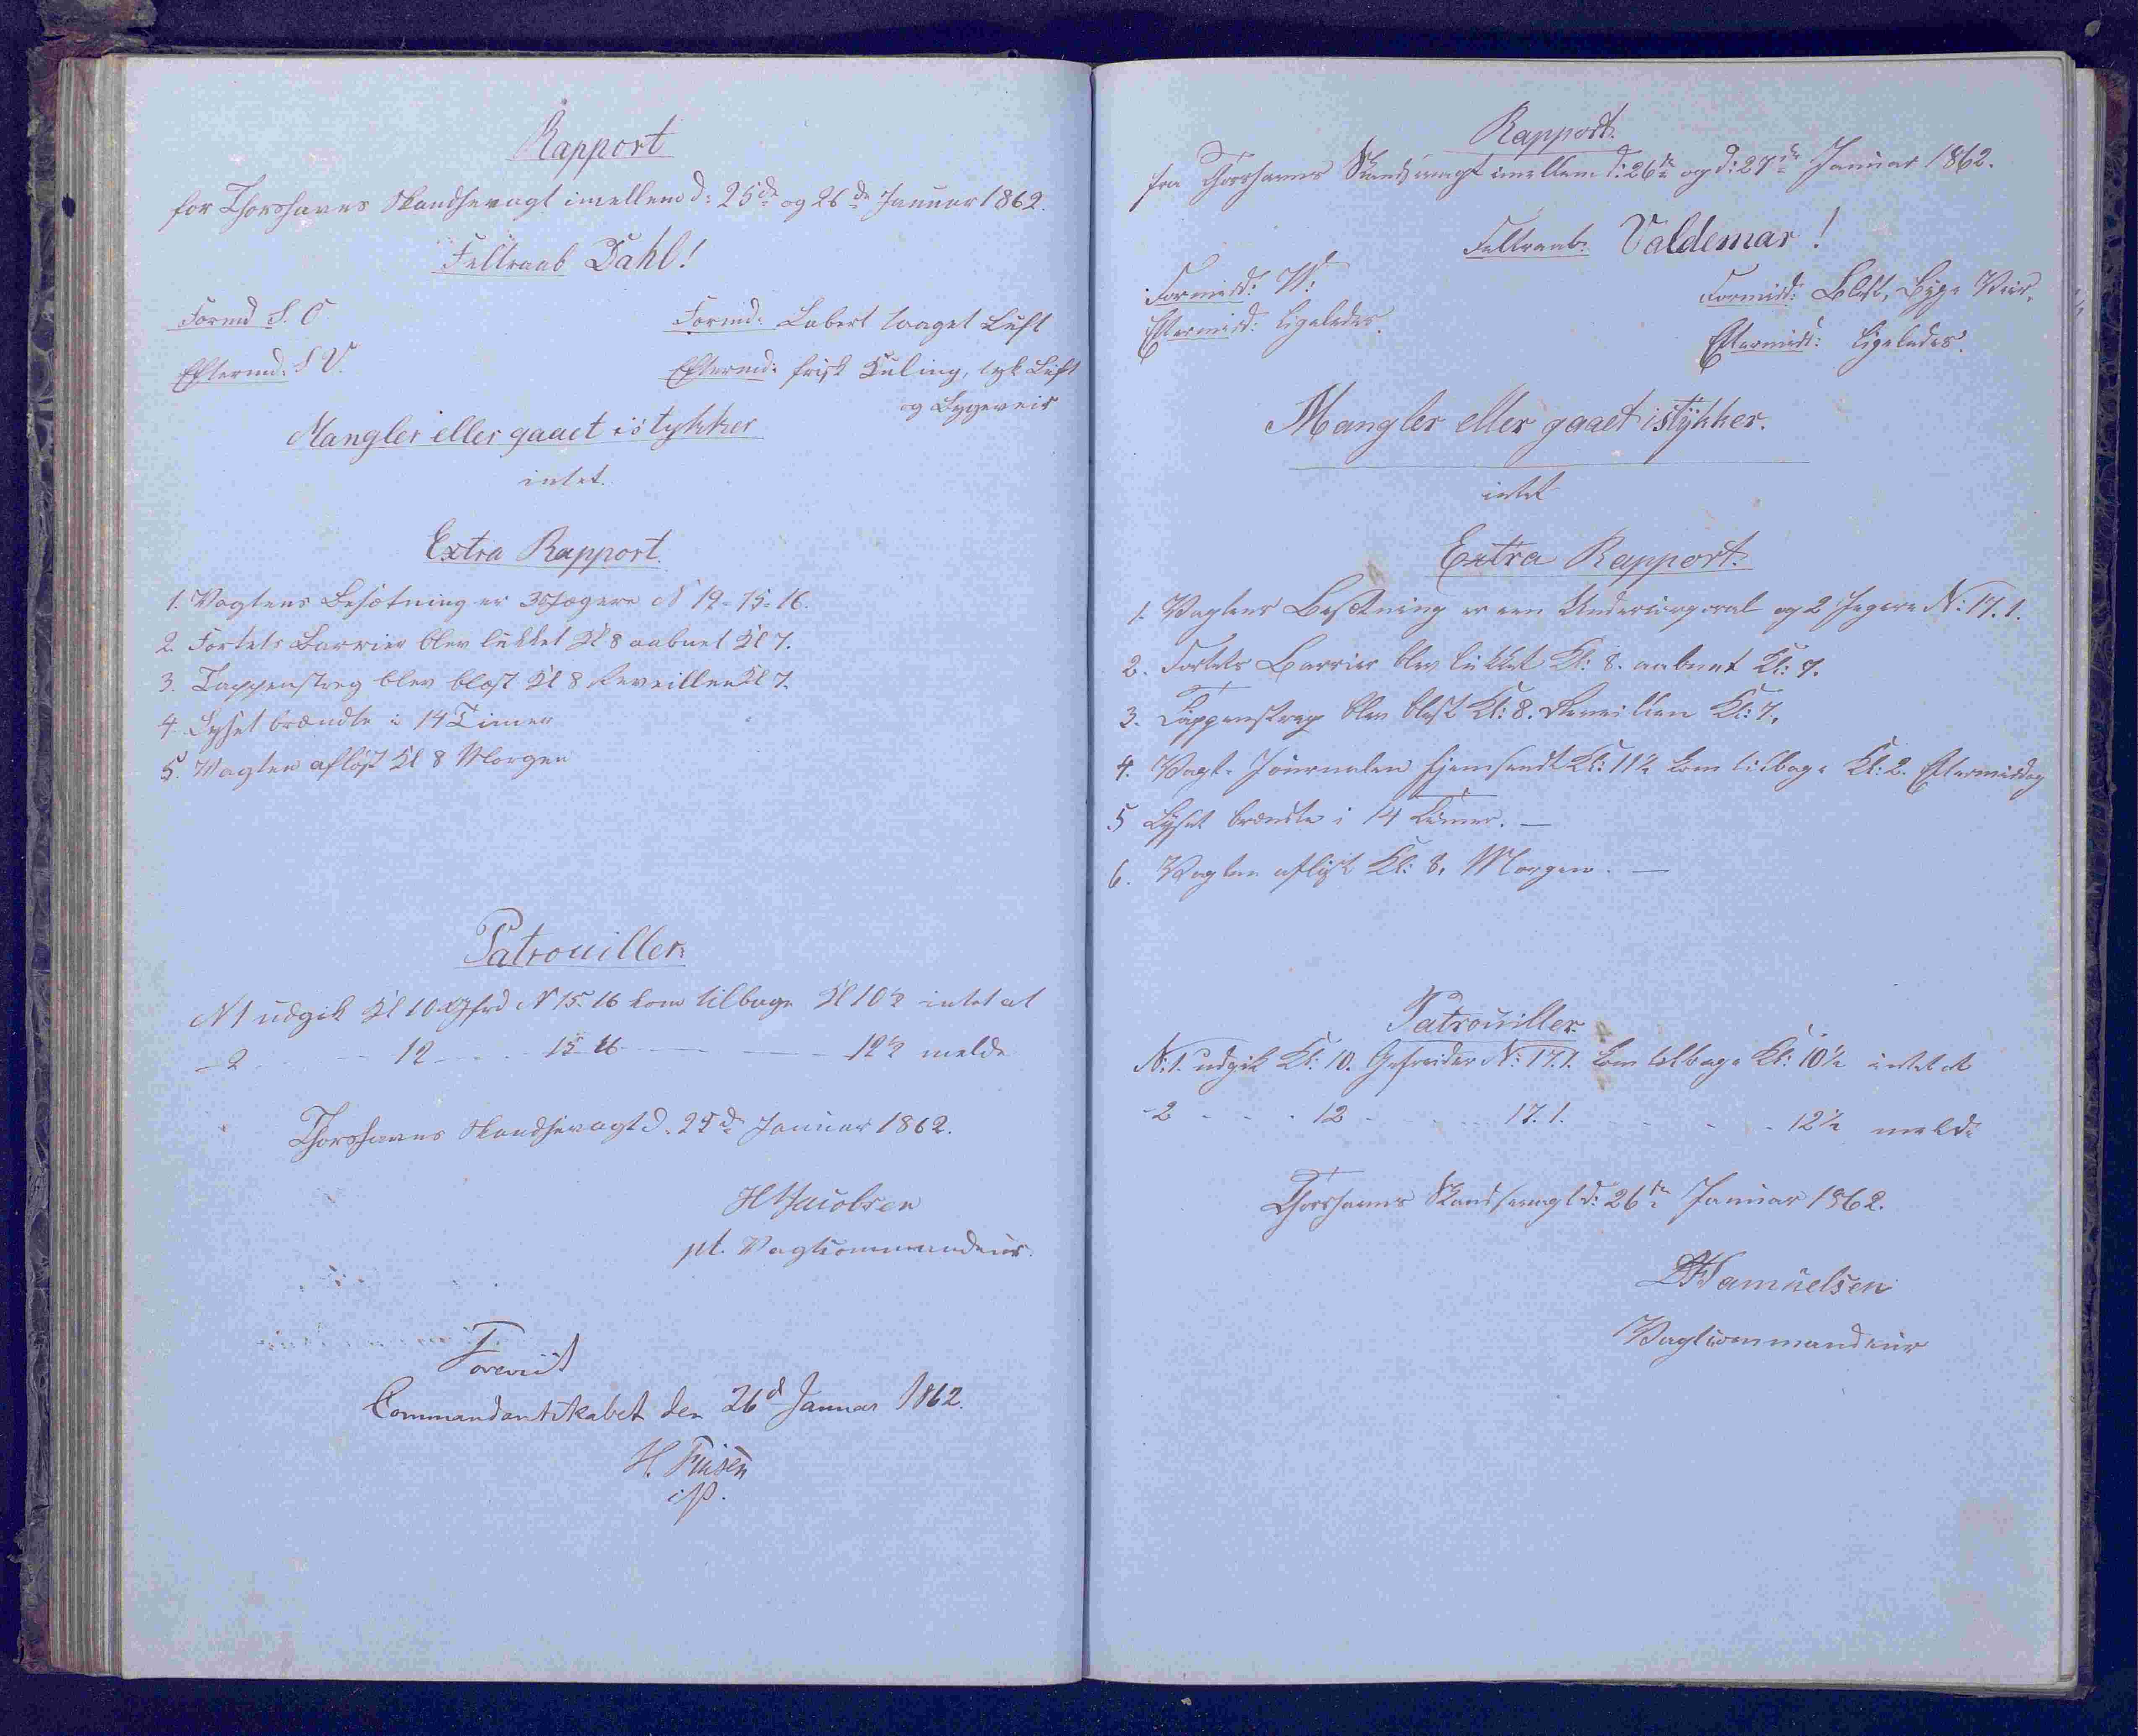 Rapport
for Thorshavns Skandsevagt imellem d: 25de og 26de Januar 1862.
Feltraab Dahl!
Formd S. O
Formd: Laber taaget Luft
Eftermd: S V.
Eftermd: frisk Kuling, tyk Luft
og Bygeveir
Mangler eller gaaet istykker
intet.
Extra Rapport.
1. Vagtens Besætning er 3 Jægere N 19-15-16.
2. Fortets Barrier blev lukket Kl 8 aabnet Kl 7.
3. Tappenstreg blev blæst Kl 8 Reveillen Kl 7.
4. Lyset brændte i 14 Timer
5. Vagten afløst Kl 8 Morgen
Patrouiller
N 1 udgik Kl 10 Gfrd N 15-16 kom tilbage Kl 10½ intet at
- 2 - - 12 - - 15-16 - - - 12½ melde
Thorshavns Skandsevagt d. 25de Januar 1862.
H Jacobsen
pt. Vagtcommandeur
Foreviist
Commandantskabet den 26d Januar 1862.
H. Finsen
Rapport.
fra Thorshavns Skandsevagt imellem d: 26de og d: 27de Januar 1862.
Feltraab: Valdemar!
Formidd: V:
Formidd: Blæst, Byge Veir.
Eftermidd: ligeledes.
Eftermidd: ligeledes.
Mangler eller gaaet istykker.
intet
Extra Rapport.
1. Vagtens Besætning er een Undercorporal og 2 Jægere N: 17. 1.
2. Fortets Barrier blev lukket Kl: 8. aabnet Kl: 7.
3. Tappenstreg blev blæst Kl: 8. Reveillen Kl: 7.
4. Vagt-Journalen hjemsendt Kl: 11½ kom tilbage Kl: 2. Eftermiddag
5 Lyset brændte i 14 Timer. —
6. Vagten afløst Kl: 8. Morgen. —
Patrouiller.
N: 1. udgik Kl: 10. Gefreider N: 17. 1. kom tilbage Kl: 10½ intet at
- 2 - - - 12 - - - 17. 1. - - - 12½ melde
Thorshavns Skandsevagt d: 26de Januar 1862.
Samuelsen
Vagtcommandeur